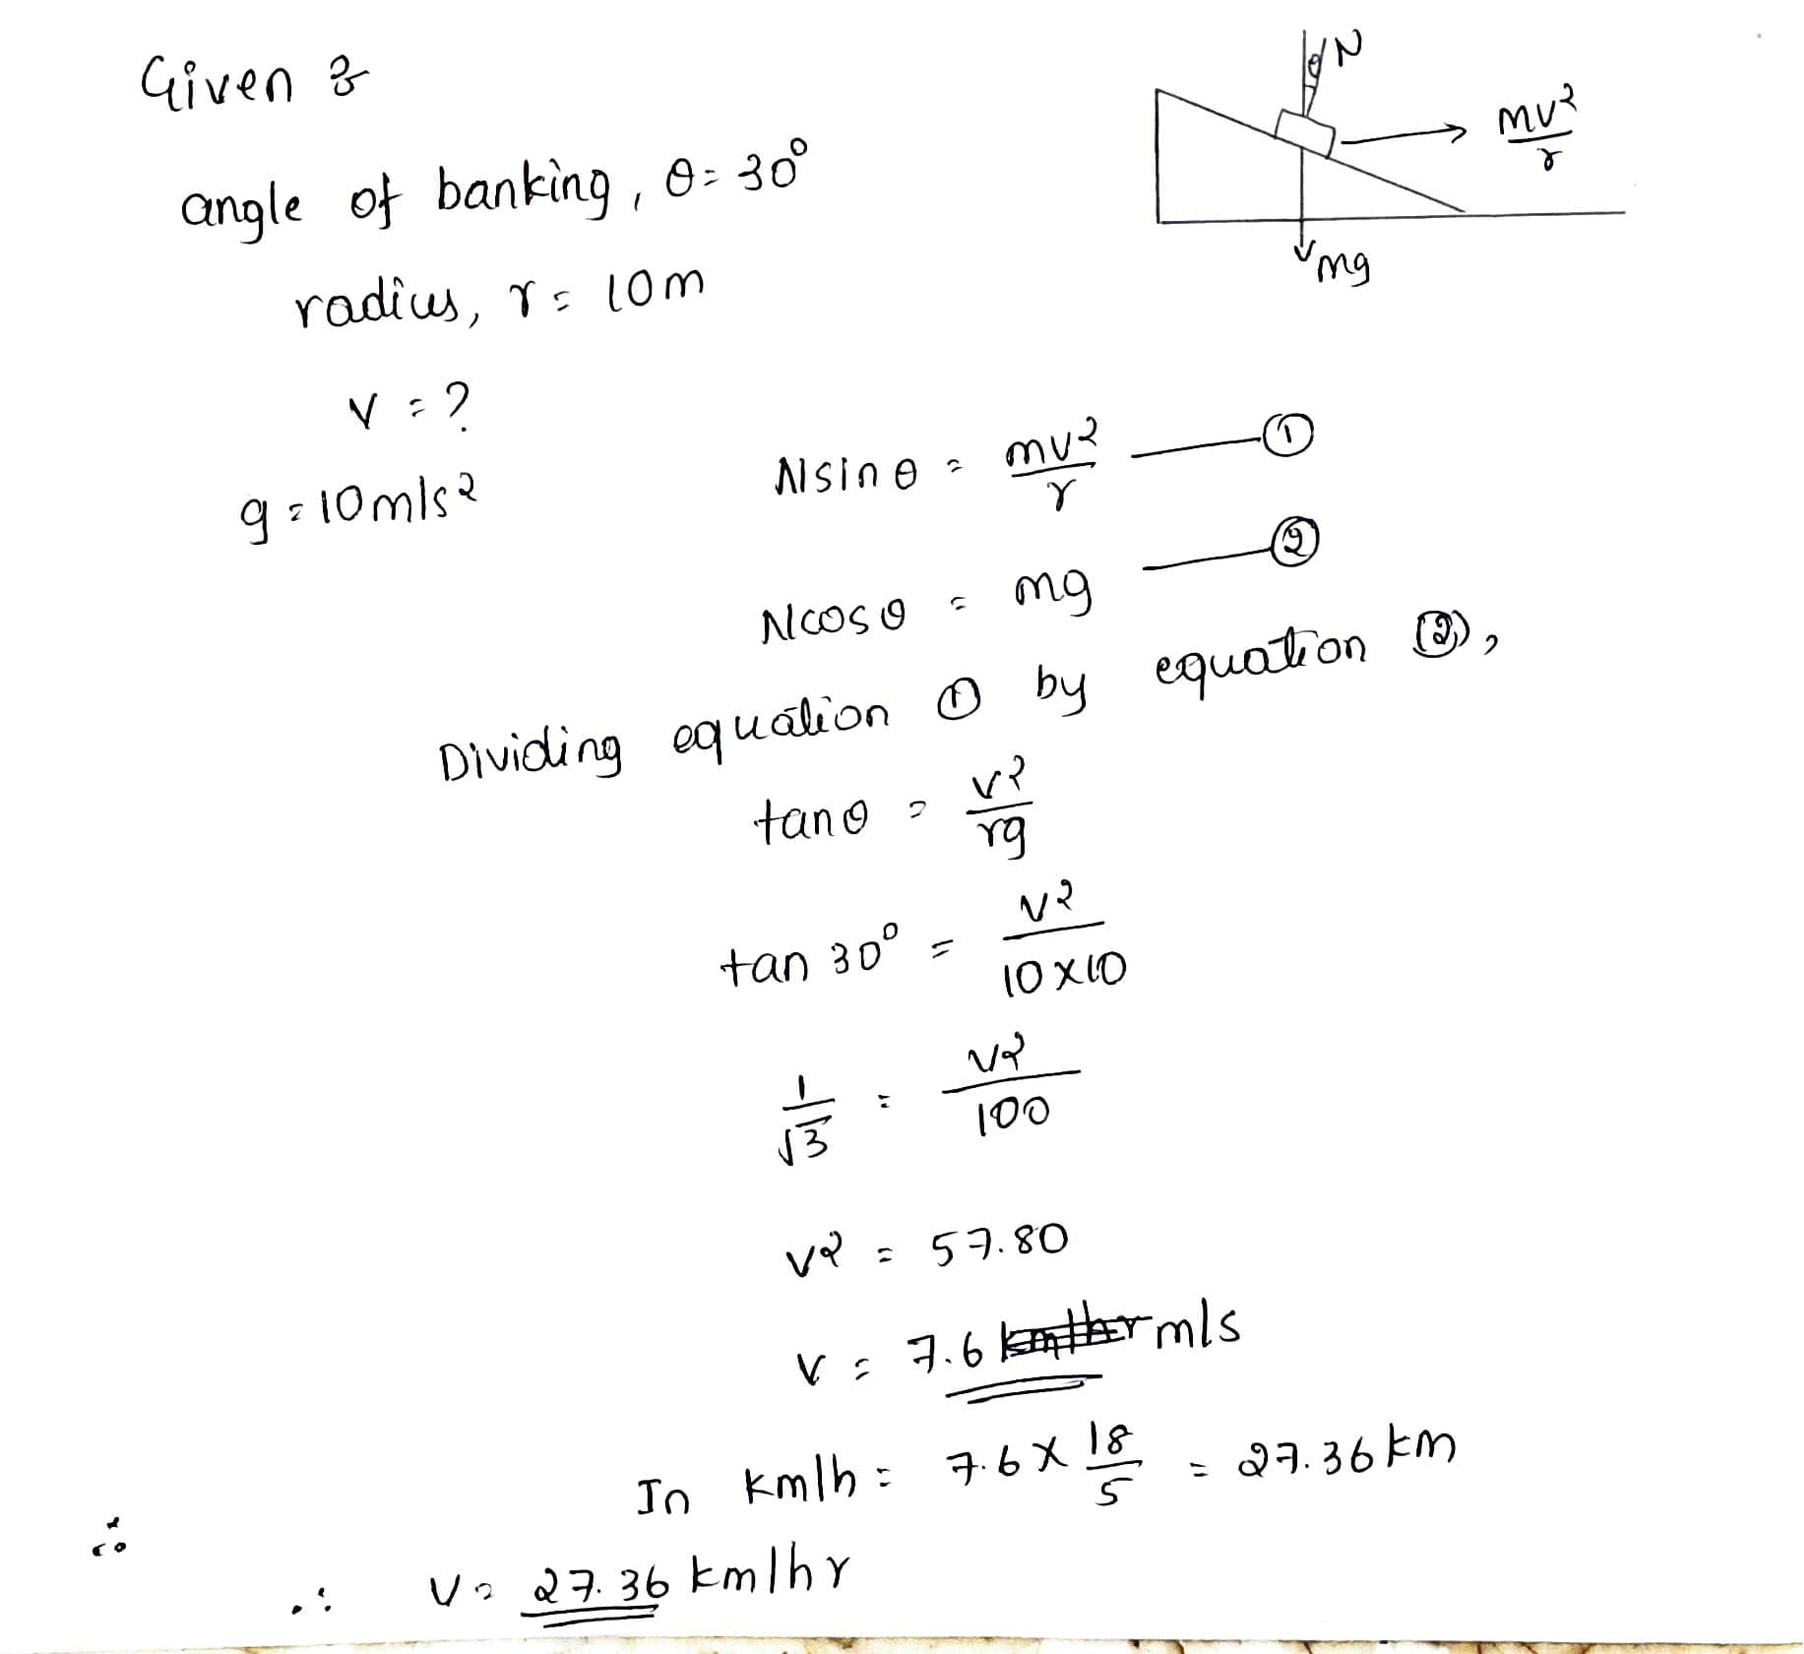 Given :-
N
mv²
r
mg
angle of banking, θ = 30°
radius, r = 10m
v = ?
g = 10m/s²
Nsinθ = mv²/r —— ①
Ncosθ = mg —— ②
Dividing equation ① by equation ②,
tanθ = v²/rg
tan 30° = v²/10×10
1/√3 = v²/100
v² = 57.80
v = 7.6 m/s
In km/h = 7.6 × 18/5 = 27.36 km
∴ v = 27.36 km/hr